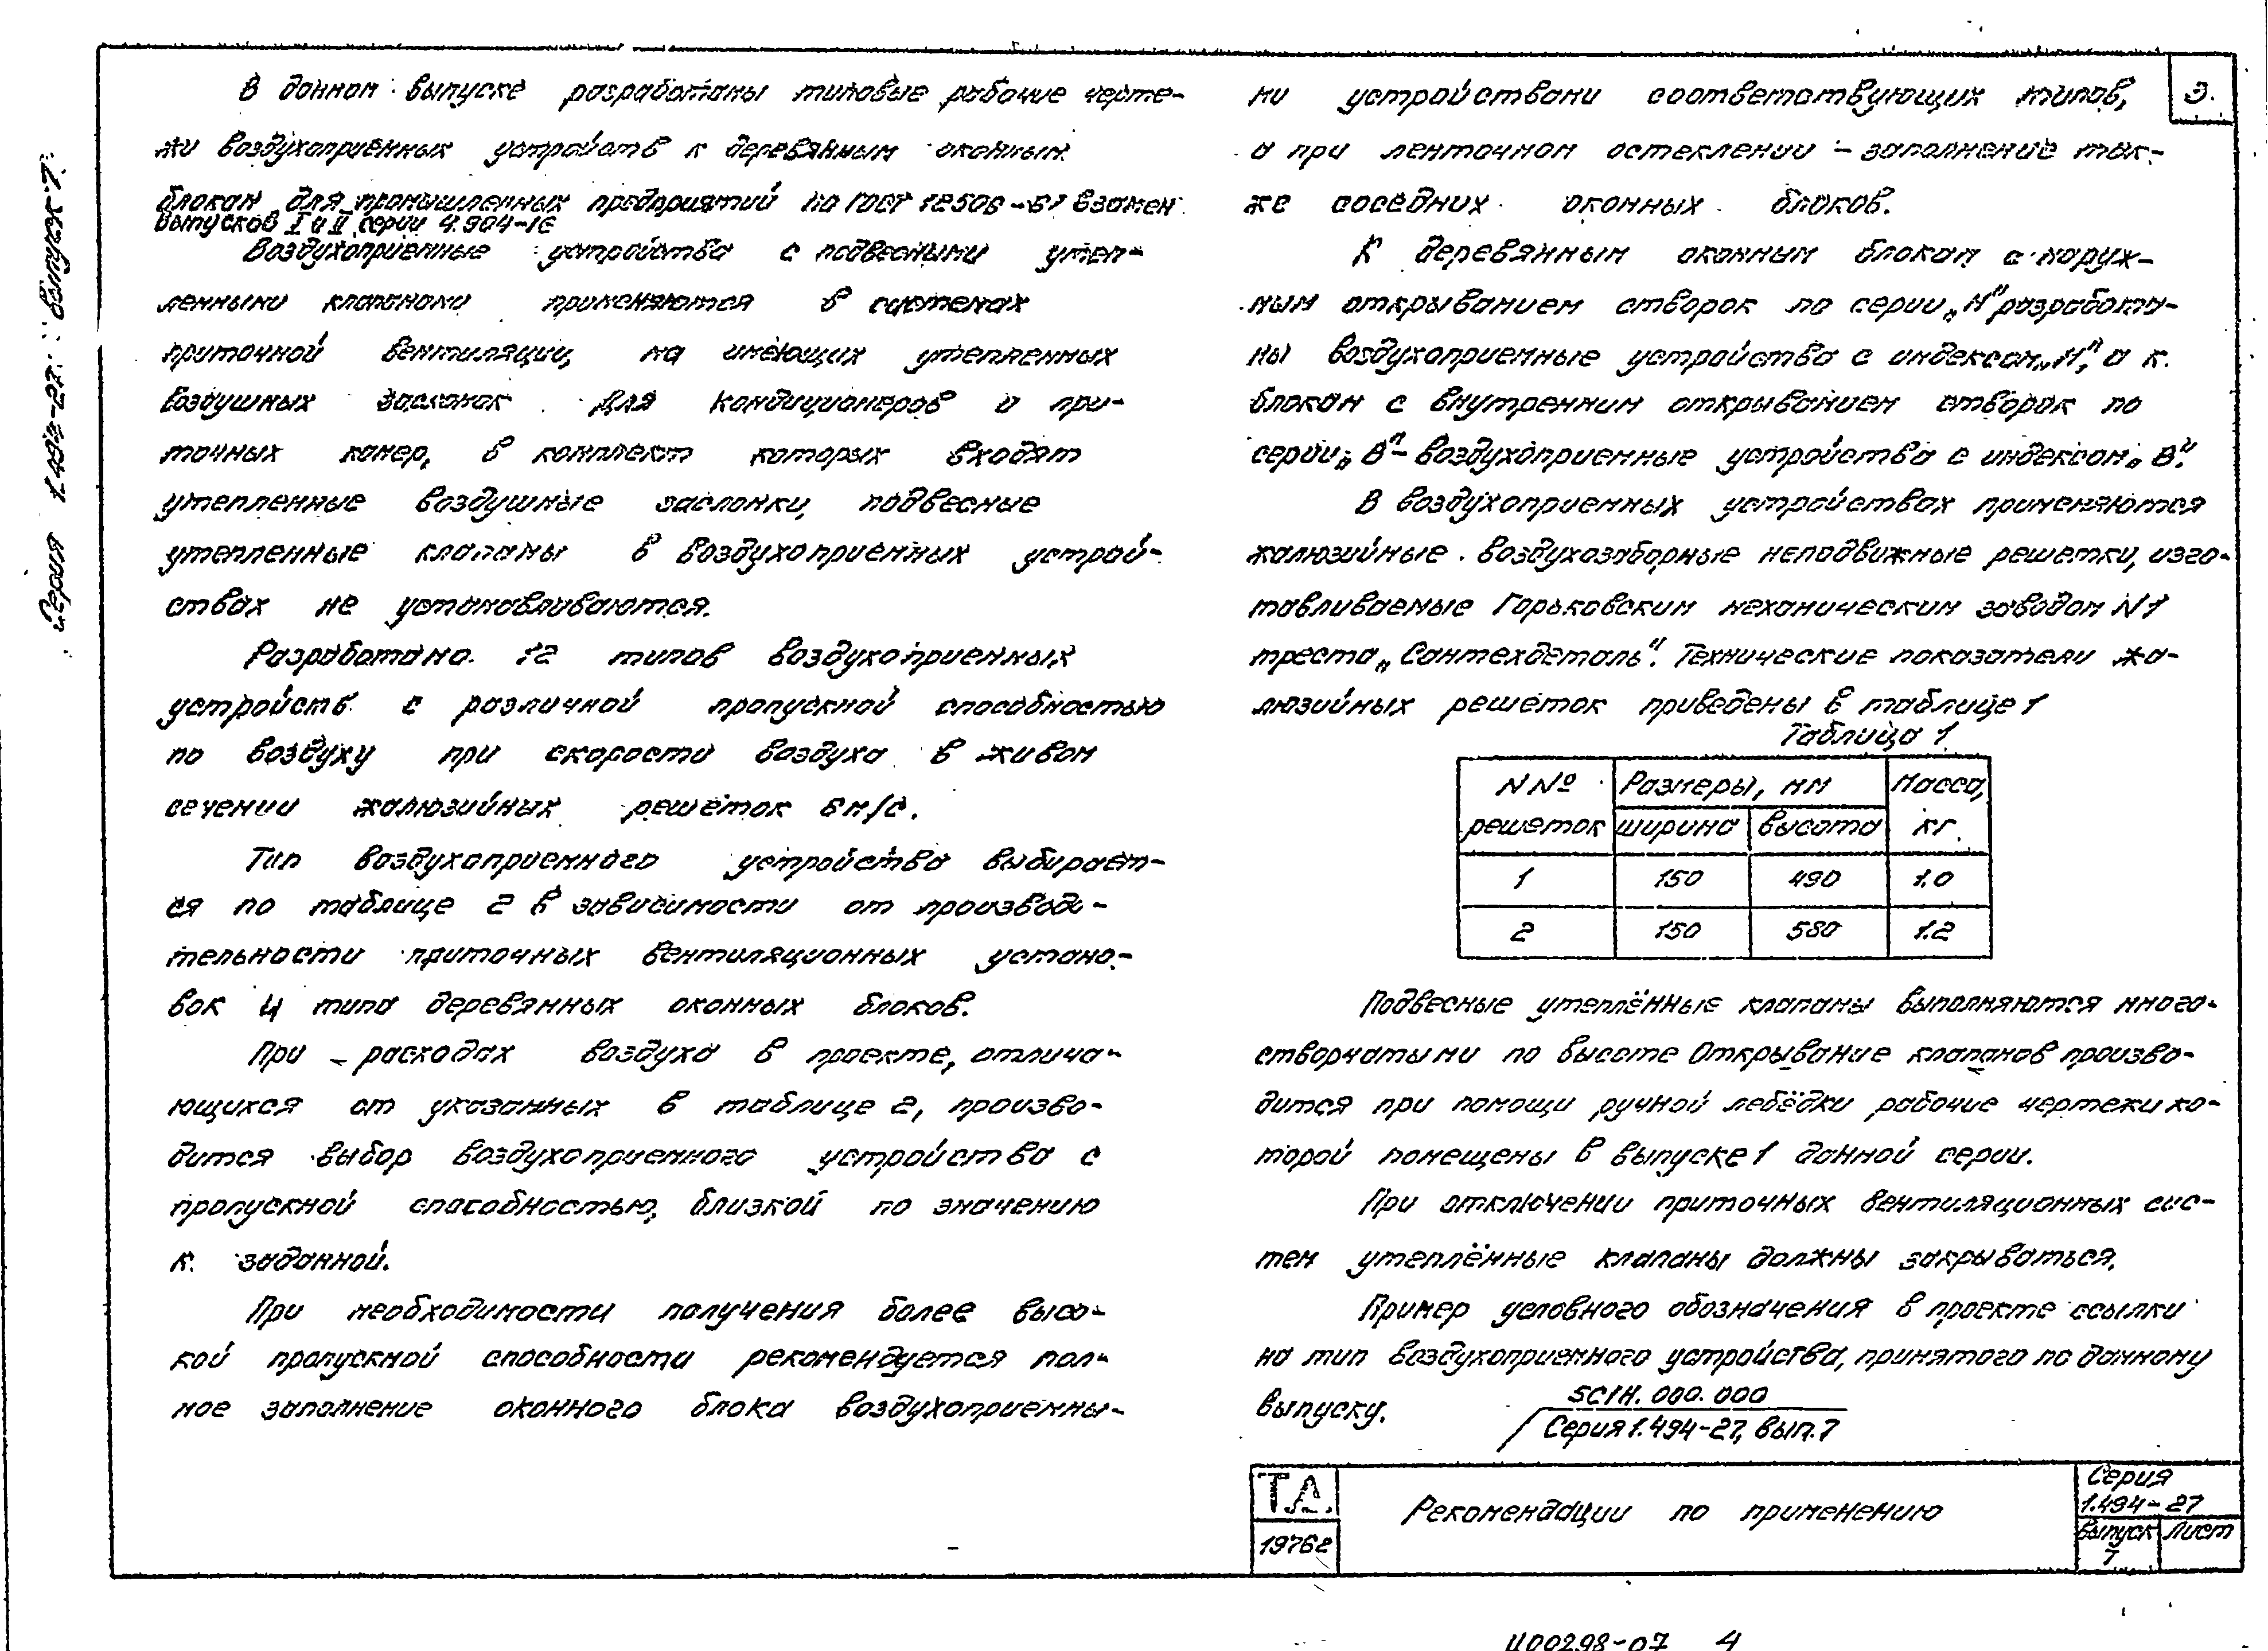 В данном выпуске разработаны типовые рабочие черте-
жи воздухоприемных устройств к деревянным оконным
блокам для промышленных предприятий по ГОСТ 12506-67 взамен
выпусков I и II серии 4.904-16
Воздухоприемные устройства с подвесными утеп-
ленными клапанами применяются в системах
приточной вентиляции, не имеющих утепленных
воздушных заслонок. Для кондиционеров и при-
точных камер, в комплект которых входят
утепленные воздушные заслонки, подвесные
утепленные клапаны в воздухоприемных устрой-
ствах не устанавливаются.
Разработано 12 типов воздухоприемных
устройств с различной пропускной способностью
по воздуху при скорости воздуха в живом
сечении жалюзийных решеток 6м/с.
Тип воздухоприемного устройства выбирает-
ся по таблице 2 в зависимости от производи-
тельности приточных вентиляционных устано-
вок и типа деревянных оконных блоков.
При расходах воздуха в проекте, отлича-
ющихся от указанных в таблице 2, произво-
дится выбор воздухоприемного устройства с
пропускной способностью, близкой по значению
к заданной.
При необходимости получения более высо-
кой пропускной способности рекомендуется пол-
ное заполнение оконного блока воздухоприемны-
ми устройствами соответствующих типов,
а при ленточном остеклении - заполнение так-
же соседних оконных блоков.
К деревянным оконным блокам с наруж-
ным открыванием створок по серии „Н" разработа-
ны воздухоприемные устройства с индексом „Н", а к
блокам с внутренним открыванием створок по
серии „В" - воздухоприемные устройства с индексом „В".
В воздухоприемных устройствах применяются
жалюзийные воздухозаборные неподвижные решетки, изго-
тавливаемые Горьковским механическим заводом N1
треста „Сантехдеталь". Технические показатели жа-
люзийных решеток приведены в таблице 1
Таблица 1
NNº решеток Размеры, мм Масса, кг.
ширина высота
1 150 490 1.0
2 150 580 1.2
Подвесные утеплённые клапаны выполняются много-
створчатыми по высоте Открывание клапанов произво-
дится при помощи ручной лебёдки рабочие чертежи ко-
торой помещены в выпуске 1 данной серии.
При отключении приточных вентиляционных сис-
тем утеплённые клапаны должны закрываться.
Пример условного обозначения в проекте ссылки
на тип воздухоприемного устройства, принятого по данному
выпуску.
5С1Н.000.000
Серия 1.494-27, вып.7
3.
Серия 1.494-27. Выпуск 7.
ТД
1976г
Рекомендации по применению
Серия
1.494-27
Выпуск Лист
7
Ц00298-07 4